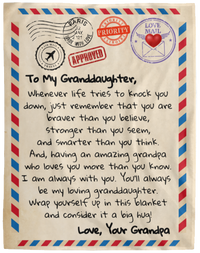 PARIS
PRIORITY
LOVE
MAIL
APPROVED
To My Granddaughter,
Whenever life tries to knock you
down, just remember that you are
braver than you believe,
stronger than you seem,
and smarter than you think.
And, having an amazing grandpa
who loves you more than you know.
I am always with you. You'll always
be my loving granddaughter.
Wrap yourself up in this blanket
and consider it a big hug!
Love, Your Grandpa